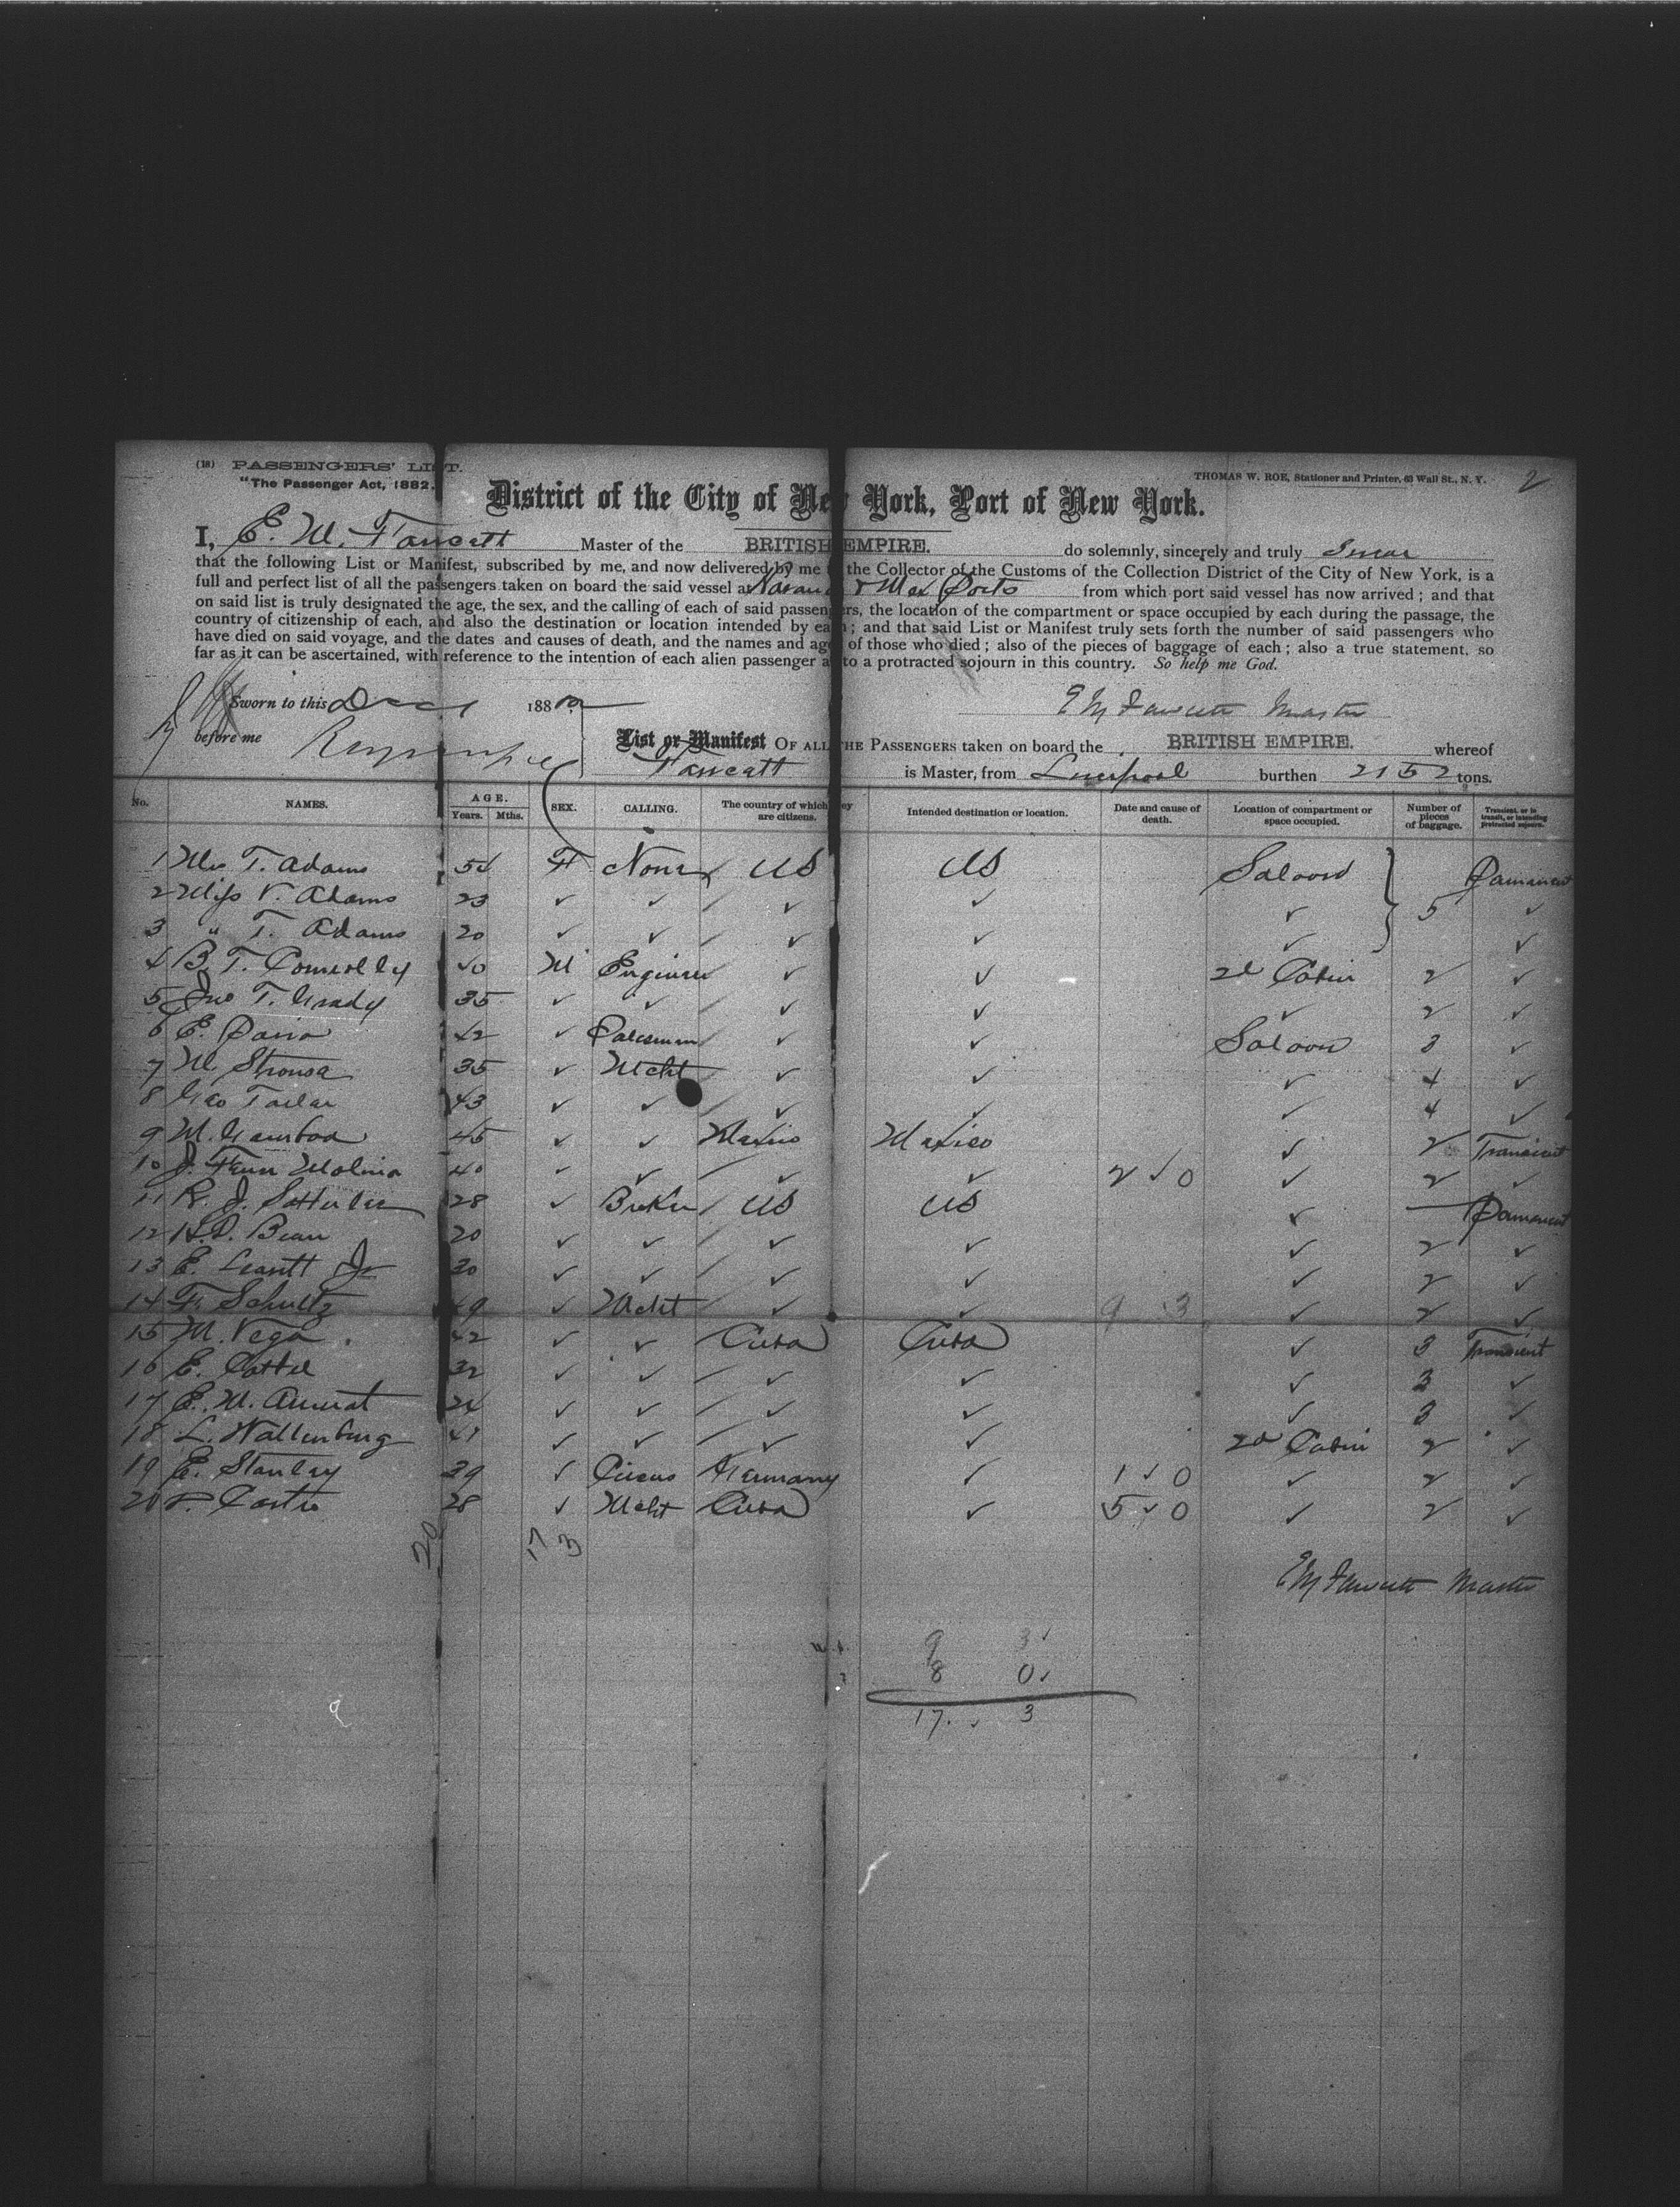 (18) PASSENGERS' LIST.
"The Passenger Act, 1882.
THOMAS W. ROE, Stationer and Printer, 63 Wall St., N. Y.
2
District of the City of New York, Port of New York.
I, E. W. Fawcett Master of the BRITISH EMPIRE. do solemnly, sincerely and truly Swear
that the following List or Manifest, subscribed by me, and now delivered by me to the Collector of the Customs of the Collection District of the City of New York, is a
full and perfect list of all the passengers taken on board the said vessel at Havana & Mex Ports from which port said vessel has now arrived; and that
on said list is truly designated the age, the sex, and the calling of each of said passengers, the location of the compartment or space occupied by each during the passage, the
country of citizenship of each, and also the destination or location intended by each; and that said List or Manifest truly sets forth the number of said passengers who
have died on said voyage, and the dates and causes of death, and the names and ages of those who died; also of the pieces of baggage of each; also a true statement, so
far as it can be ascertained, with reference to the intention of each alien passenger as to a protracted sojourn in this country. So help me God.
Sworn to this Dec 188
before me
E W Fawcett Master
List or Manifest OF ALL THE PASSENGERS taken on board the BRITISH EMPIRE. whereof
Fawcett is Master, from Liverpool burthen 2152 tons.
No. NAMES. AGE. Years. Mths. SEX. CALLING. The country of which they are citizens. Intended destination or location. Date and cause of death. Location of compartment or space occupied. Number of pieces of baggage. Transient, or in transit, or intending protracted sojourn.
1 Mrs T. Adams 54 F None US US Saloon Permanent
2 Miss V. Adams 23 ✓ ✓ ✓ ✓ ✓ 5 ✓
3 " T. Adams 20 ✓ ✓ ✓ ✓ ✓ ✓
4 B. T. Connolly 40 M Engineer ✓ ✓ 2d Cabin 2 ✓
5 Jno T. Grady 35 ✓ ✓ ✓ ✓ ✓ 2 ✓
6 E. 42 ✓ Salesman ✓ ✓ Saloon 3 ✓
7 M. Strousa 35 ✓ Mcht ✓ ✓ ✓ 4 ✓
8 Geo 43 ✓ ✓ ✓ ✓ ✓ 4 ✓
9 M. Gamboa 45 ✓ ✓ Mexico Mexico ✓ 2 Transient
10 J. Molina 40 ✓ ✓ ✓ ✓ 2 ✓ 0 ✓ 2 ✓
11 R. J. 28 ✓ Broker US US ✓ — Permanent
12 Bean 20 ✓ ✓ ✓ ✓ ✓ 2 ✓
13 E. Leavitt Jr 30 ✓ ✓ ✓ ✓ ✓ 2 ✓
14 F. Schultz 49 ✓ Mcht ✓ ✓ 9 3 ✓ 2 ✓
15 M. Vega 42 ✓ ✓ Cuba Cuba ✓ 3 Transient
16 E. 32 ✓ ✓ ✓ ✓ ✓ 3 ✓
17 E. M. 24 ✓ ✓ ✓ ✓ ✓ 3 ✓
18 L. Wallenburg 41 ✓ ✓ ✓ ✓ 2d Cabin 2 ✓
19 E. Stanley 39 ✓ Circus Germany ✓ 1 ✓ 0 ✓ 2 ✓
20 P. Castro 28 ✓ Mcht Cuba ✓ 5 ✓ 0 ✓ 2 ✓
20 17 3
E W Fawcett Master
9 3 ✓
8 0 ✓
17. ✓ 3